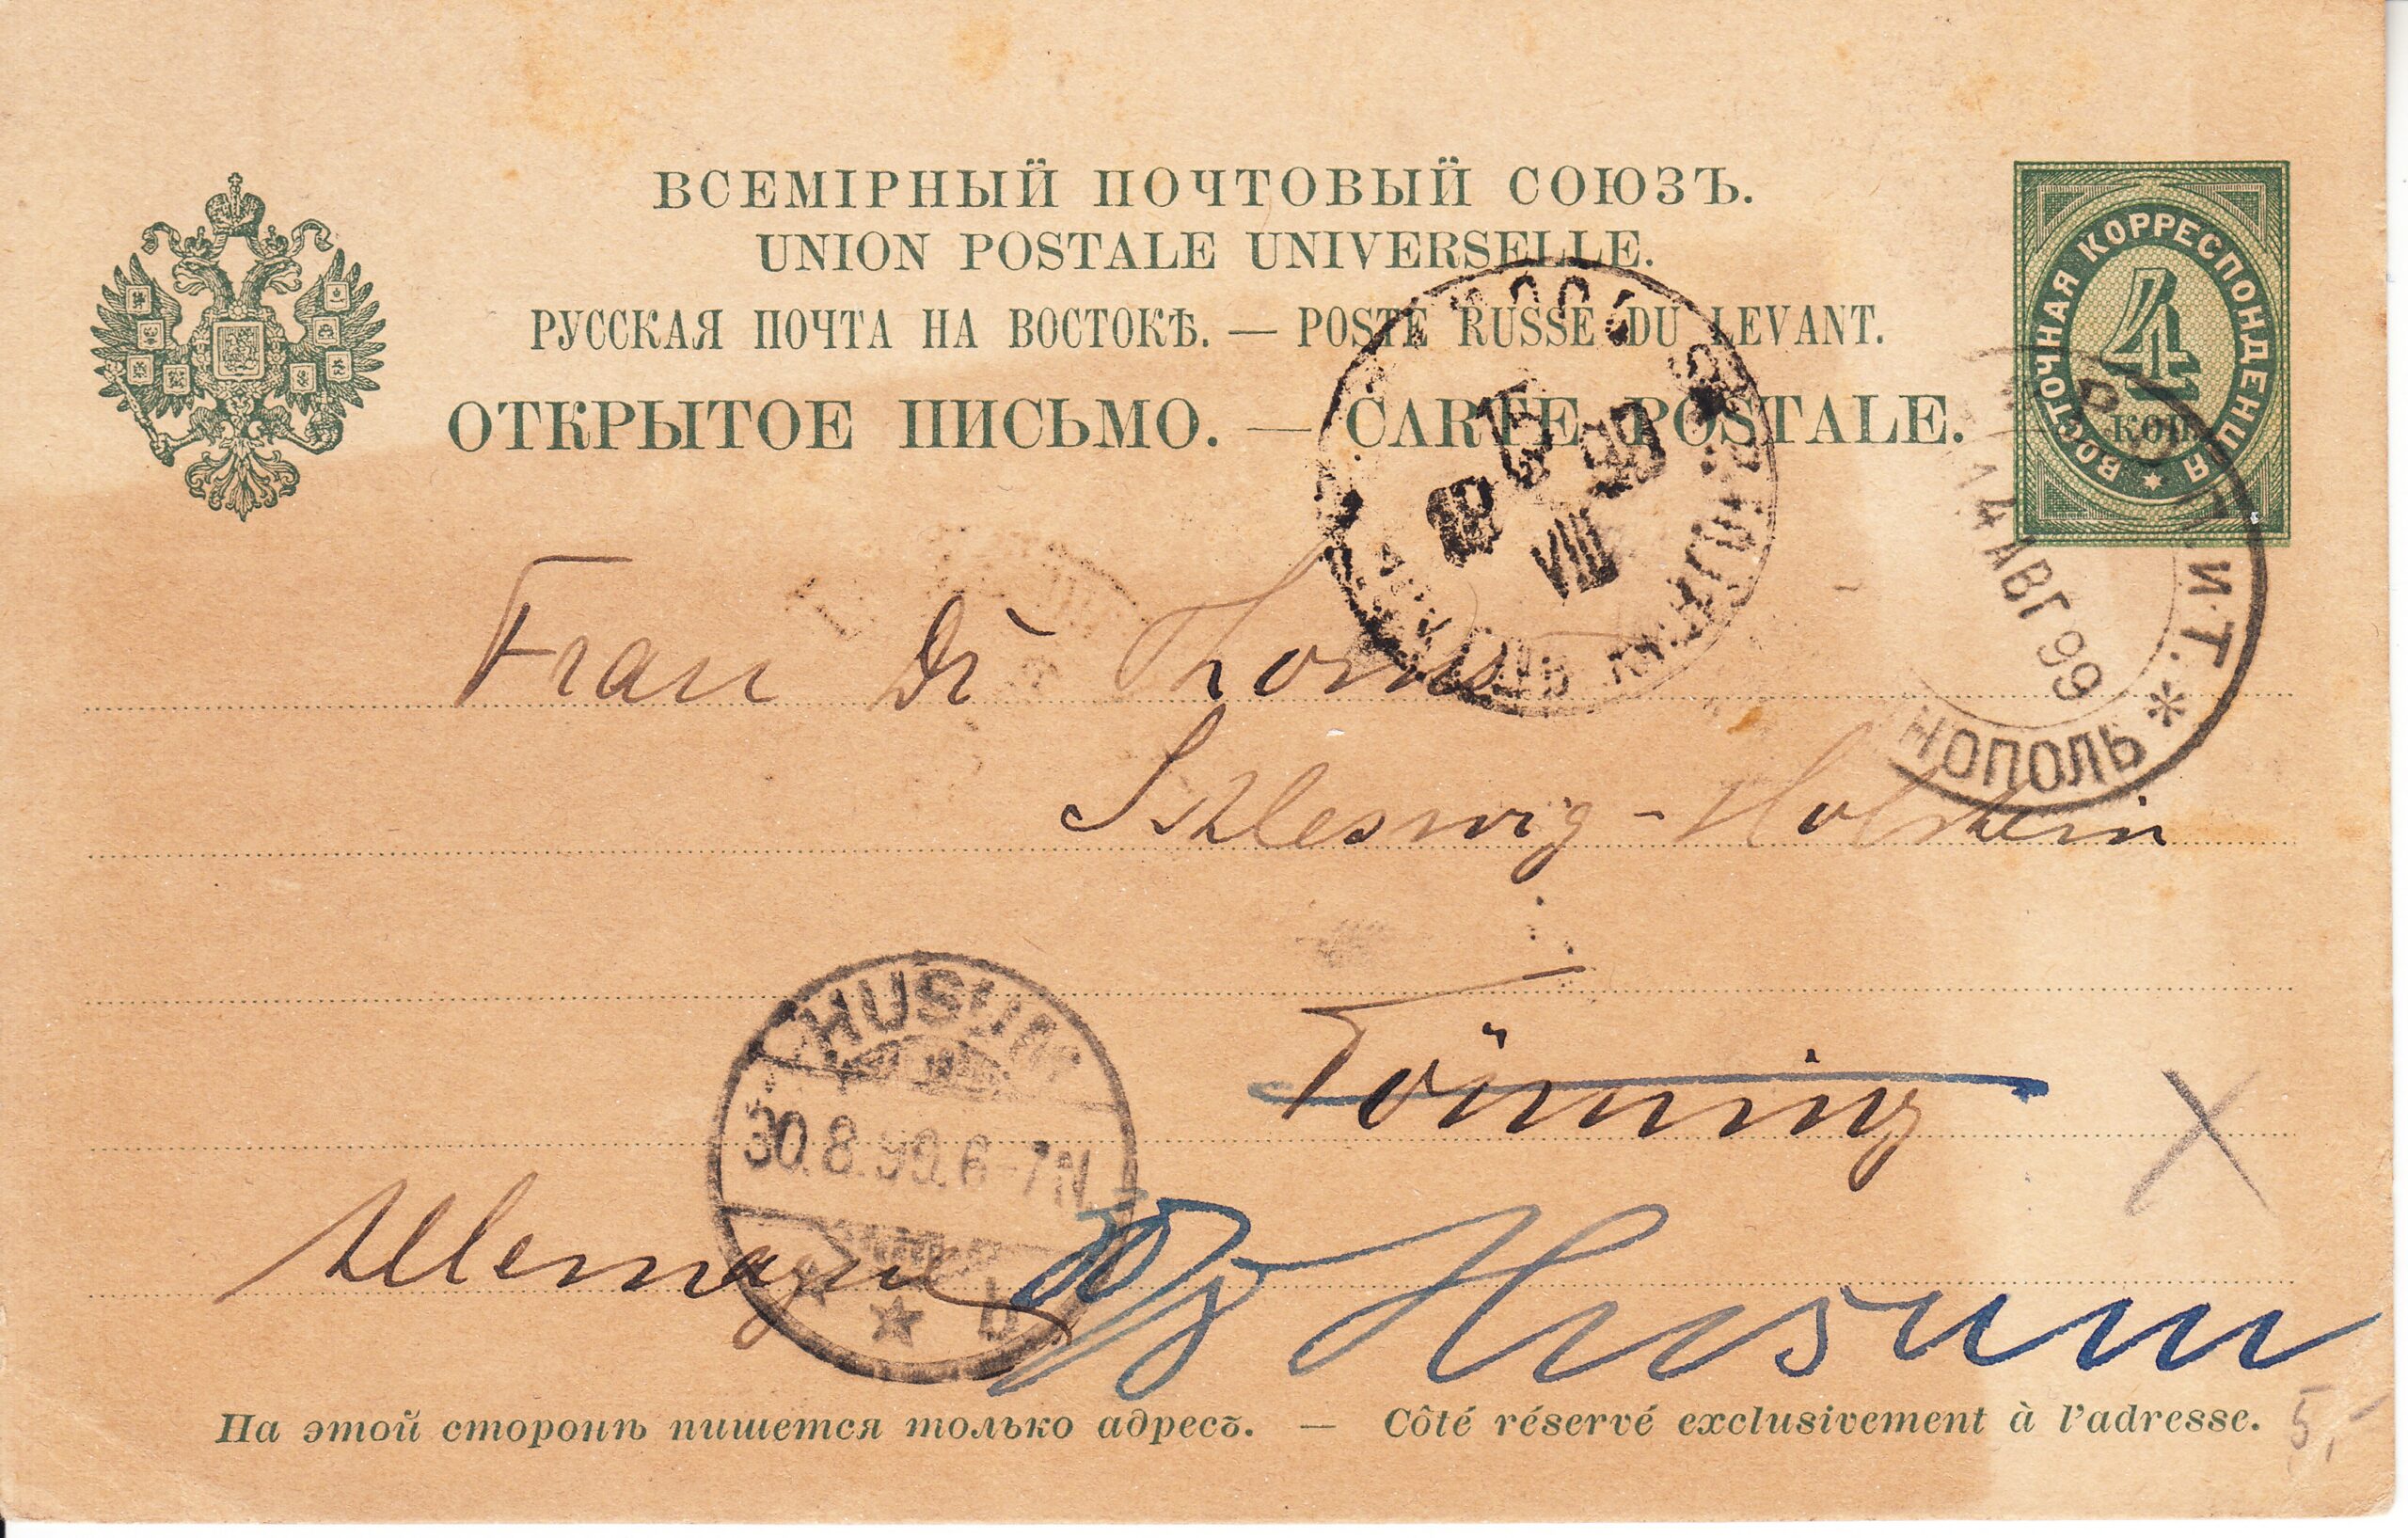 ВСЕМІРНЫЙ ПОЧТОВЫЙ СОЮЗЪ.
UNION POSTALE UNIVERSELLE.
РУССКАЯ ПОЧТА НА ВОСТОКѢ. — POSTE RUSSE DU LEVANT.
ОТКРЫТОЕ ПИСЬМО. — CARTE POSTALE.
ВОСТОЧНАЯ КОРРЕСПОНДЕНЦІЯ
4
КОП.
14 АВГ 99
НОПОЛЬ
15
VIII
Frau Dr
Schleswig-Holstein
Tönning
Allemagne
Husum
HUSUM
30.8.99.6-7N.
b
На этой сторонѣ пишется только адресъ. — Côté réservé exclusivement à l'adresse.
5,-